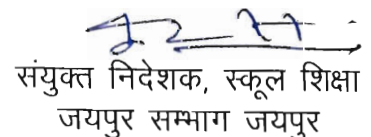 संयुक्त निदेशक, स्कूल शिक्षा
जयपुर सम्भाग जयपुर